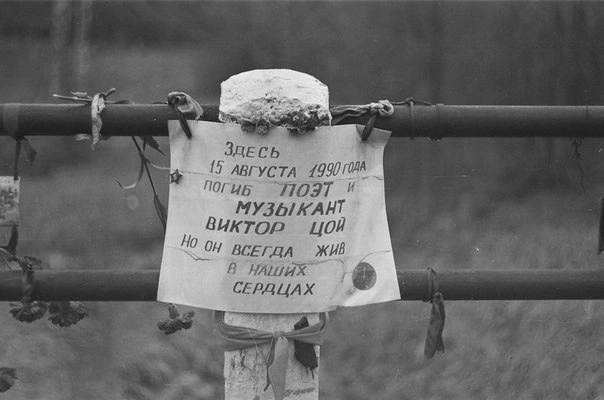 Здесь
15 августа 1990 года
погиб поэт и
музыкант
Виктор Цой
Но он всегда жив
в наших
сердцах